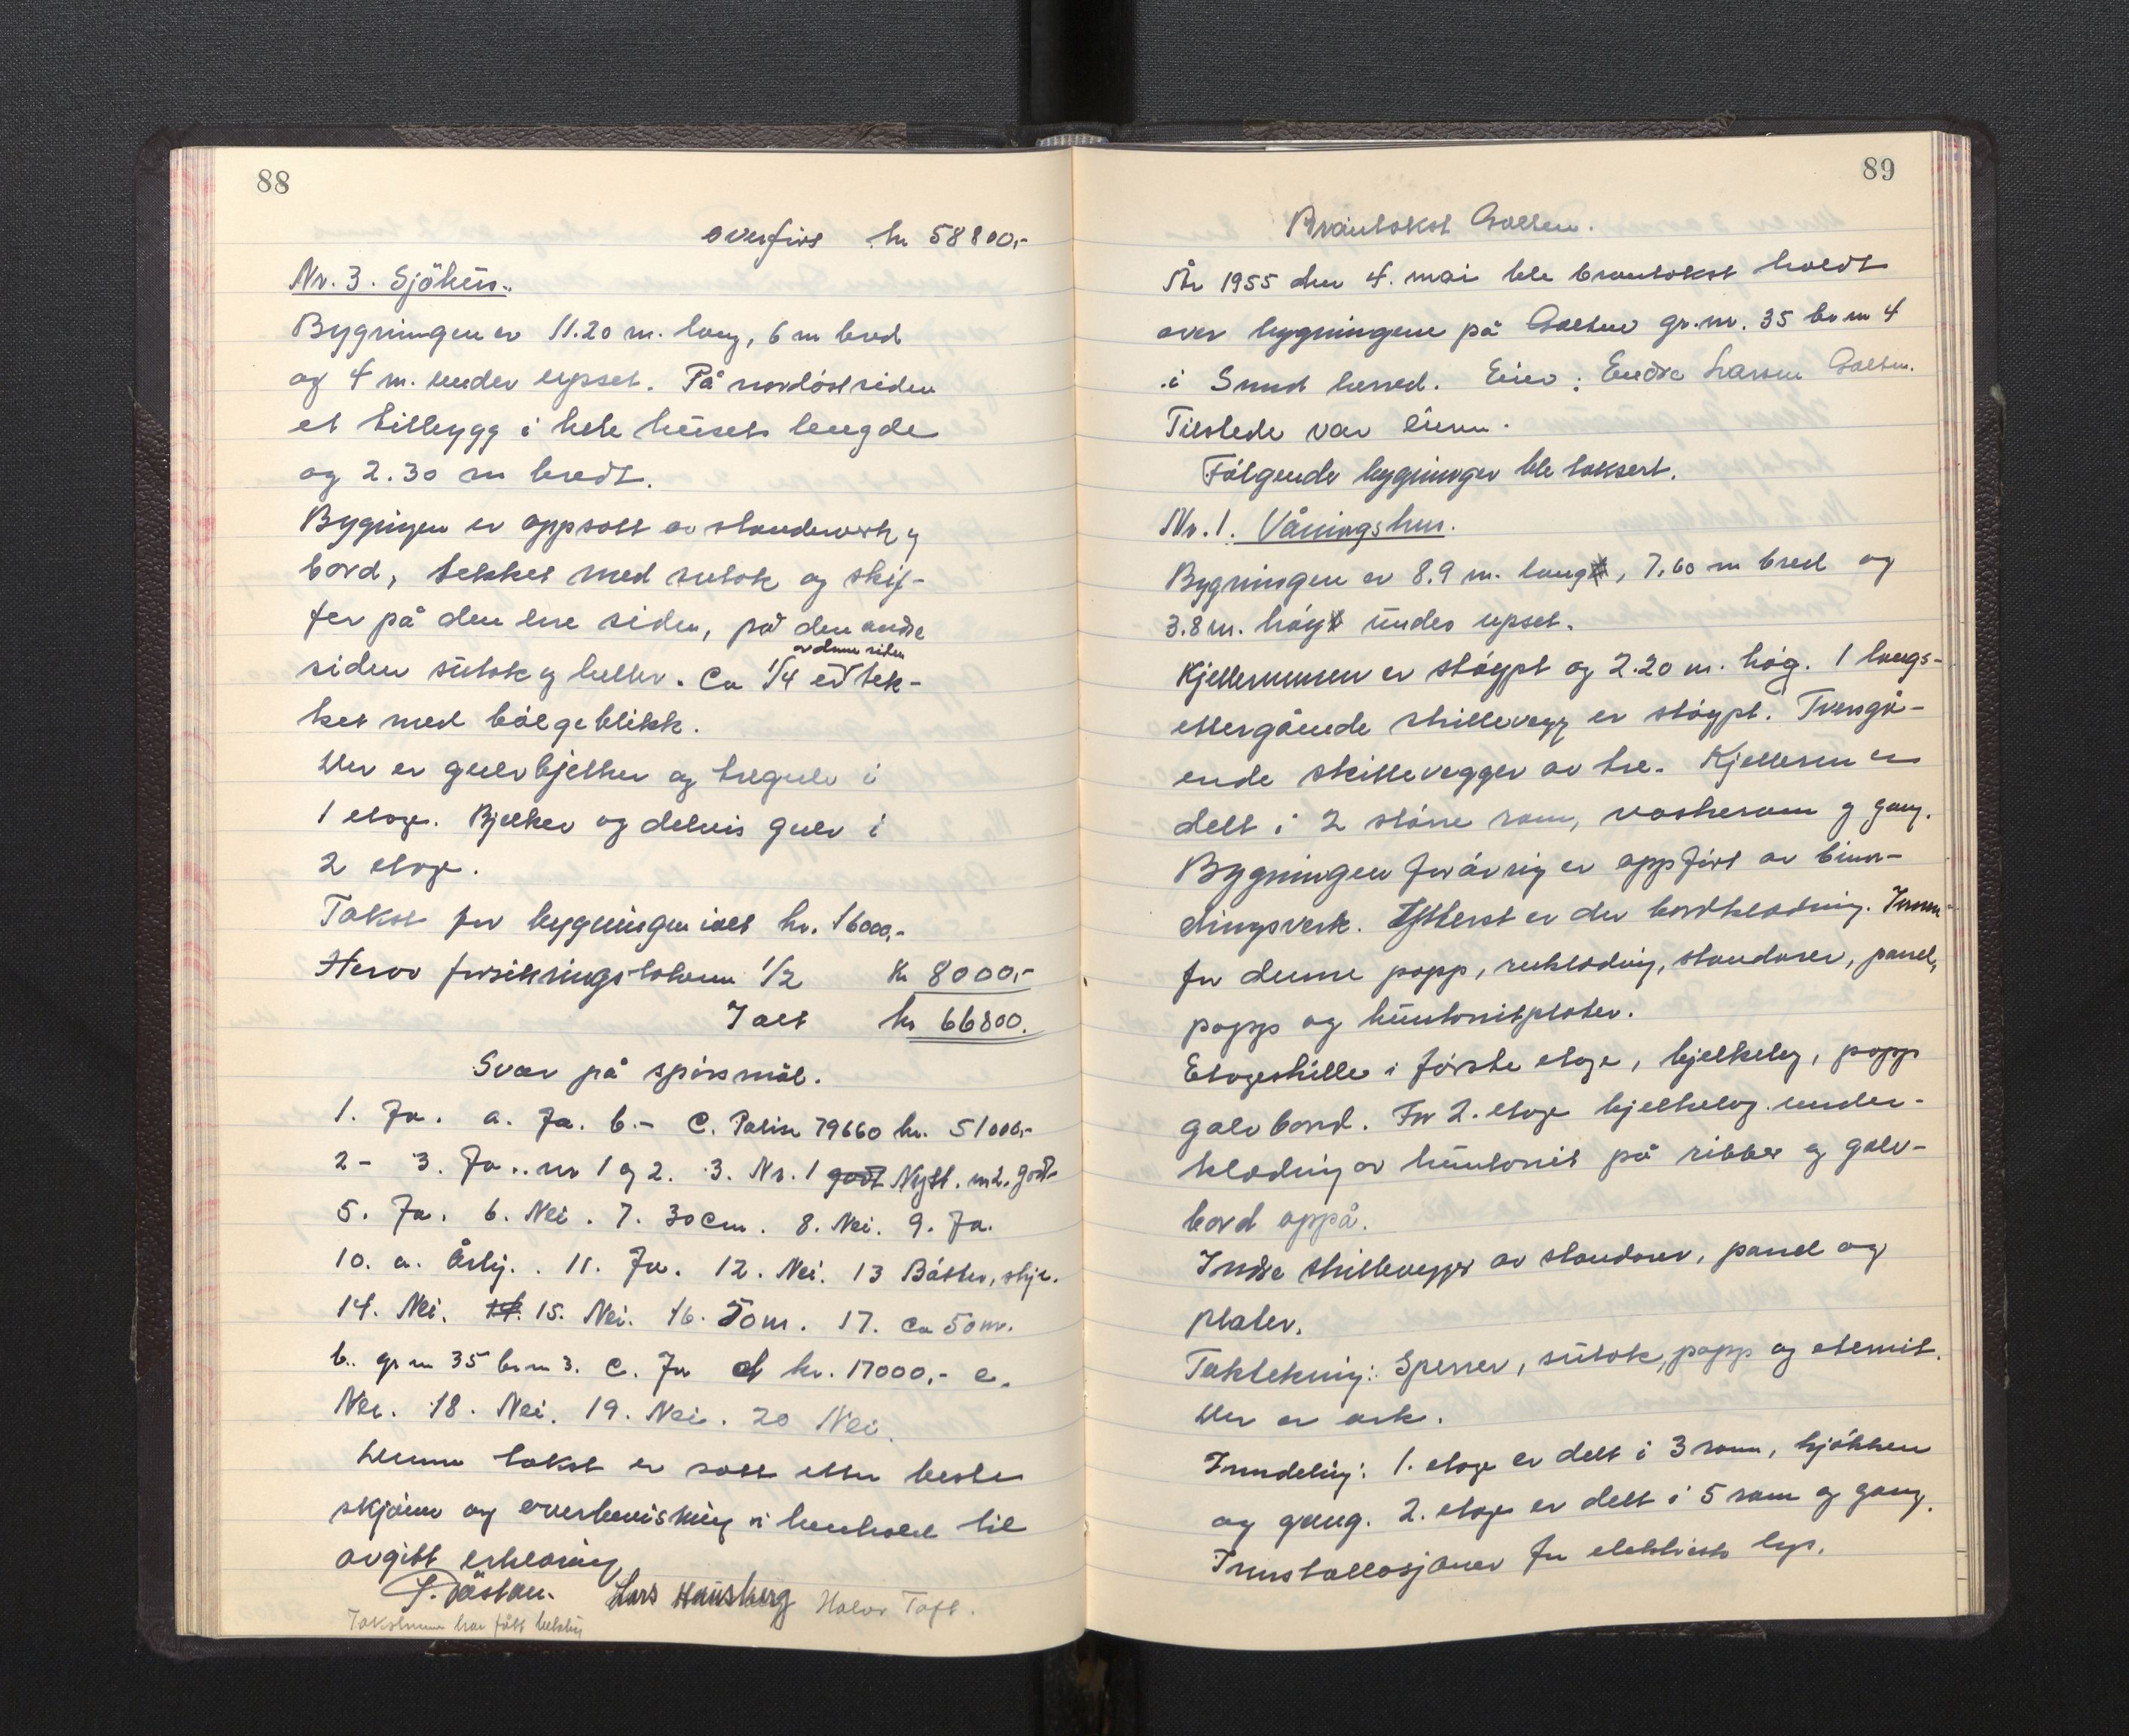 88
overført kr 58800,-
Nr. 3. Sjöhus.
Bygningen er 11.20 m. lang, 6 m bred
og 4 m. under upset. På nordöstsiden
et tilbygg i hele husets lengde
og 2.30 m bredt.
Bygningen er oppsatt av standerverk og
bord, tekket med sutak og skif-
fer på den ene siden, på den andre
av denne siden
siden sutak og heller. Ca 1/4 er tek-
ket med bölgeblikk.
Der er gulvbjelker og tregulv i
1 etage. Bjelker og delvis gulv i
2 etage.
Takst for bygningen ialt kr. 16000,-
Herav forsikringstakseres 1/2 Kr 8000,-
I alt kr 66800.
Svar på spörsmål.
1. Ja. a. Ja. b.- C. Polise 79660 kr. 51000,-
2 - 3. Ja.. nr 1 og 2. 3. Nr. 1 godt Nytt. nr 2. godt
5. Ja. 6. Nei. 7. 30 cm. 8. Nei. 9. Ja.
10. a. Årlig. . 11. Ja. 12. Nei. 13 Båtter, stige.
14. Nei. 14. 15. Nei. 16. 50 m. 17. ca 50 m.
b.. gr nr 35 br nr 3. c. Ja d kr. 17000,- e.
Nei. 18. Nei. 19. Nei. 20 Nei.
Denne takst er satt etter beste
skjönn og overbevisning i henhold til
avgitt erklæring
Lars Hausberg Halvor Toft.
Takstmenn har fått betaling
89
Branntakst Golten.
År 1955 den 4. mai ble branntakst holdt
over bygningene på Golten gr.nr. 35 br nr 4
i Sund herred. Eier: Endre Larsen Golten.
Tilstede var eieren.
Fölgende bygninger ble taksert.
Nr. 1. Våningshus.
Bygningen er 8.9 m. lang, 7.60 m bred og
3.8 m. höy under upset.
Kjellermuren er stöypt og 2.20 m. hög. 1 langs-
ettergående skillevegg er stöypt. Tverrgå-
ende skillevegger av tre. Kjelleren er
delt i 2 större rom, vaskerom og gang.
Bygningen forövrig er oppfört av binn-
dingsverk. Ytterst er der bordkledning. Innen-
for denne papp, rukledning, standarer, panel,
papp og huntonitplater.
Etageskille i förste etage, bjelkelag, papp
golvbord. For 2. etage bjelkelag. under-
kledning av huntonit på ribber og golv-
bord oppå.
Indre skillevegger av standarer, panel og
plater.
Taktekning: Sperrer, sutak, papp og eternit.
Der er ark.
Inndeling: 1. etage er delt i 3 rom, kjökken
og gang. 2. etage er delt i 5 rom og gang.
Innstallasjoner for elektrisk lys.